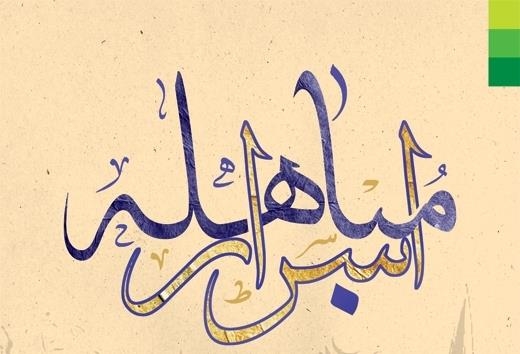 اسرار مباهله